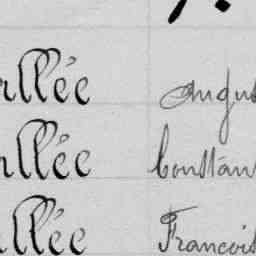 rllée Augus
rllée Constan
rllée Francois